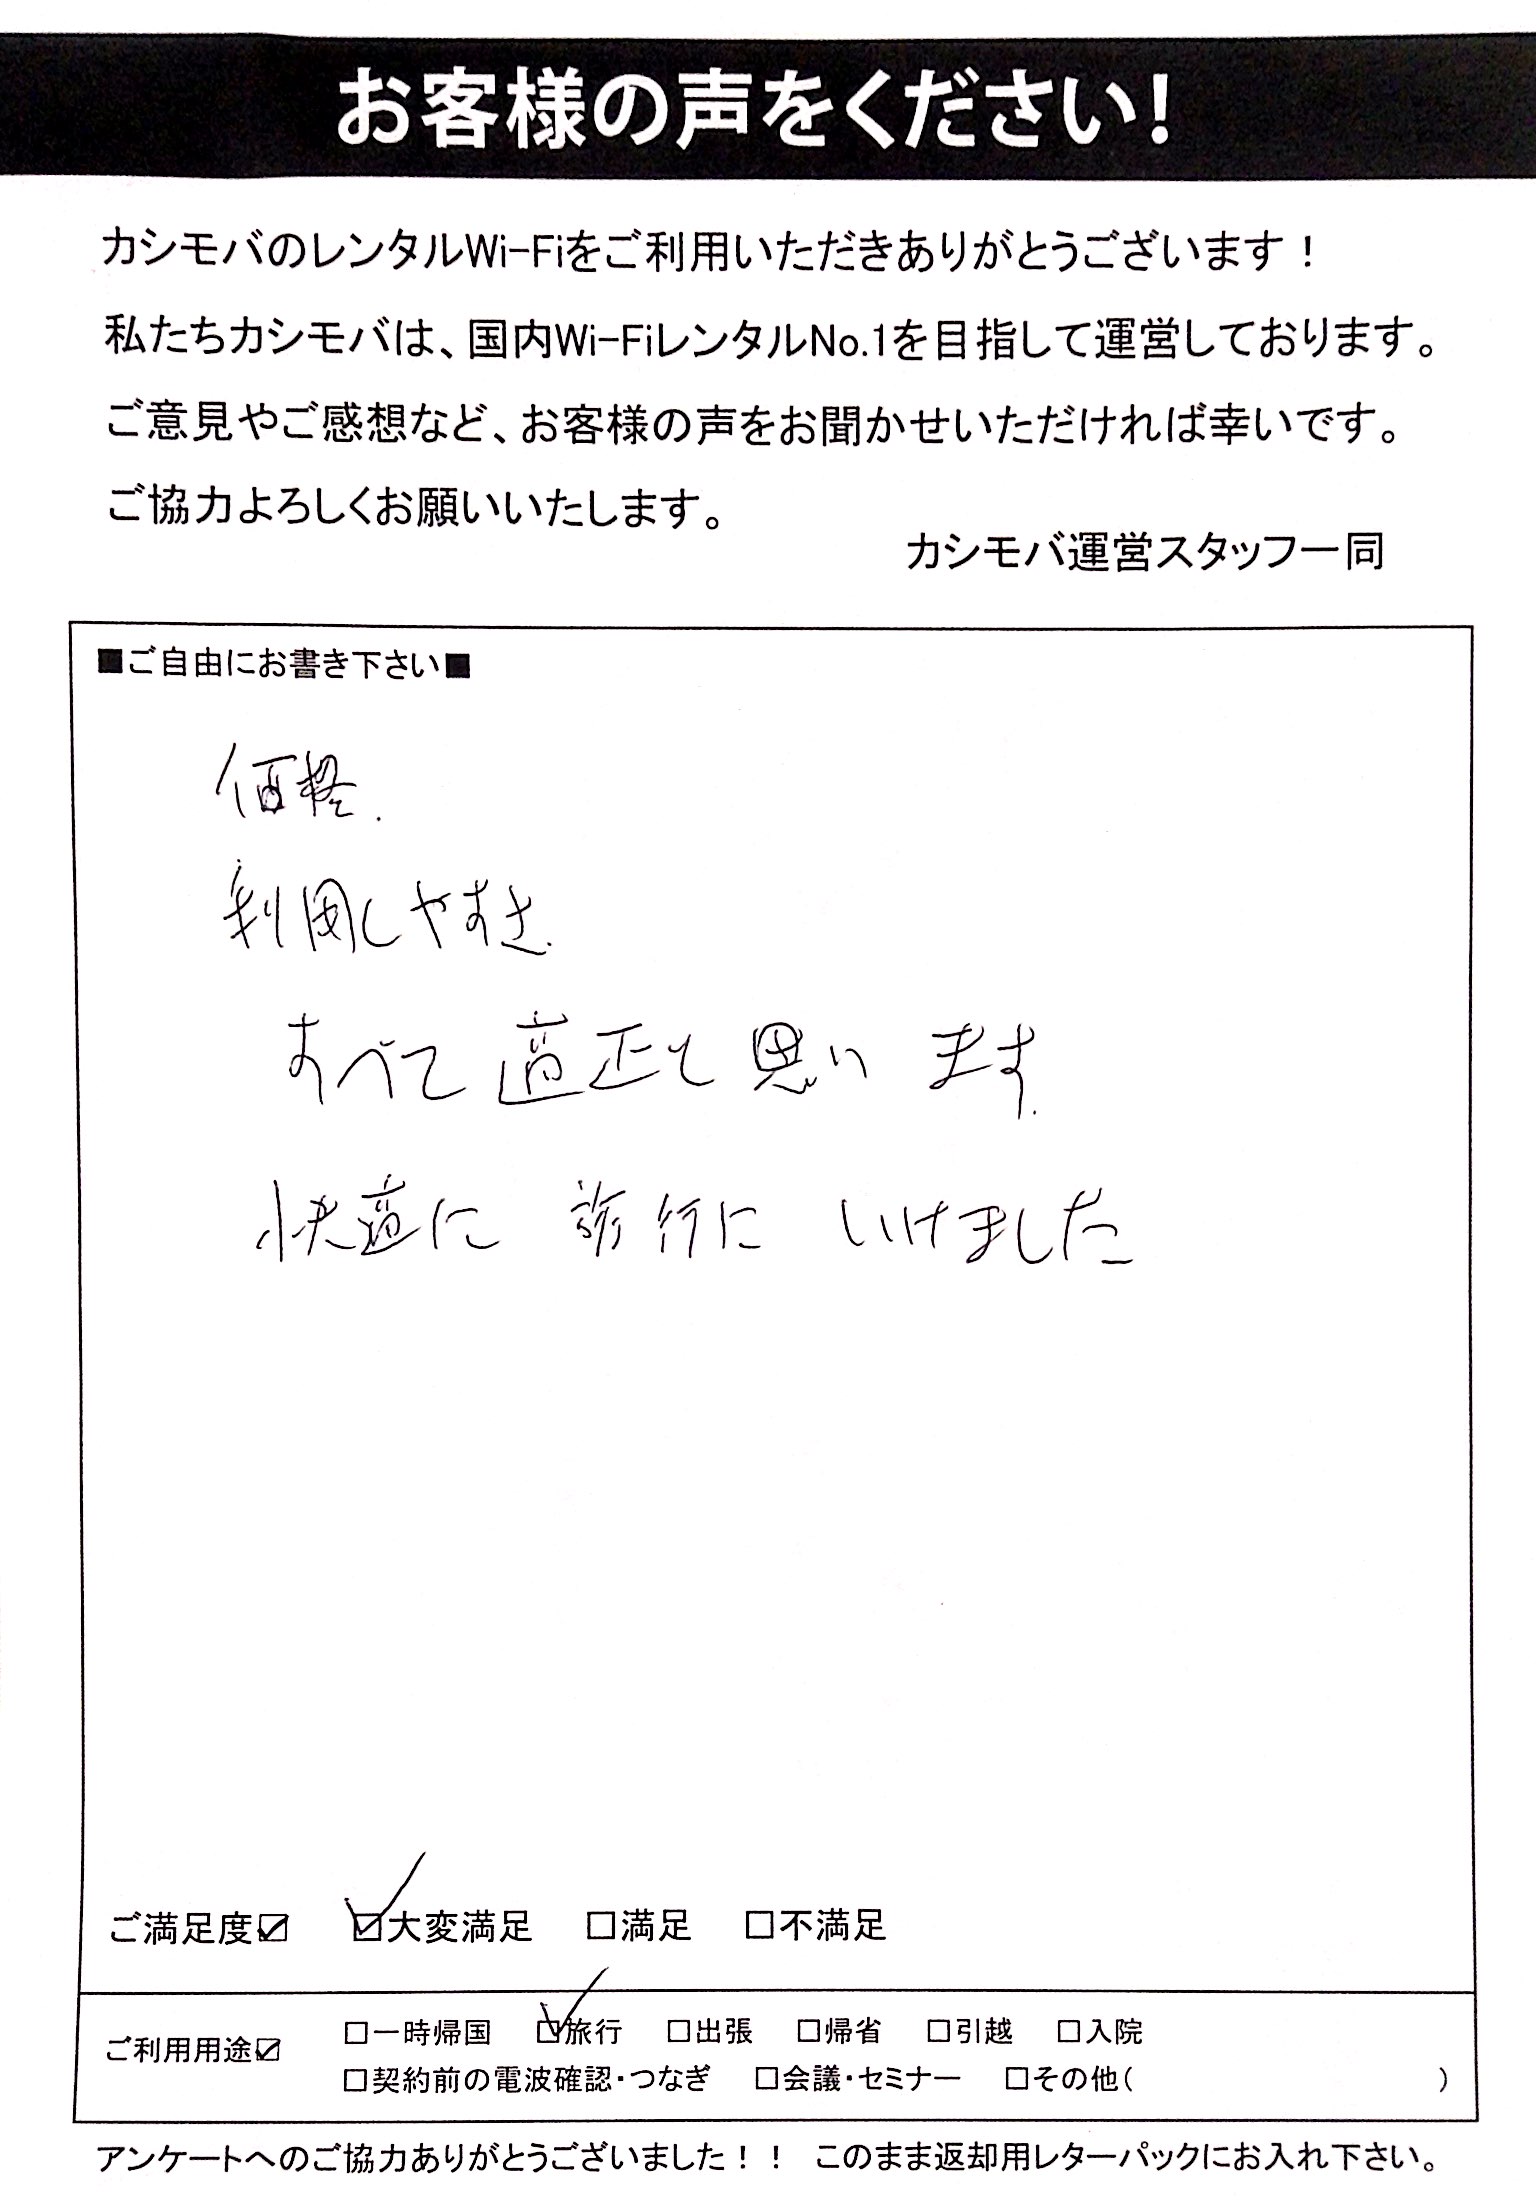 お客様の声をください!
カシモバのレンタルWi-Fiをご利用いただきありがとうございます！
私たちカシモバは、国内Wi-FiレンタルNo.1を目指して運営しております。
ご意見やご感想など、お客様の声をお聞かせいただければ幸いです。
ご協力よろしくお願いいたします。
カシモバ運営スタッフ一同
■ご自由にお書き下さい■
価格.
利用しやすさ.
すべて適正と思います.
快適に 旅行に いけました
ご満足度☑ ☑大変満足 □満足 □不満足
ご利用用途☑ □一時帰国 ☑旅行 □出張 □帰省 □引越 □入院
□契約前の電波確認・つなぎ □会議・セミナー □その他( )
アンケートへのご協力ありがとうございました！！ このまま返却用レターパックにお入れ下さい。